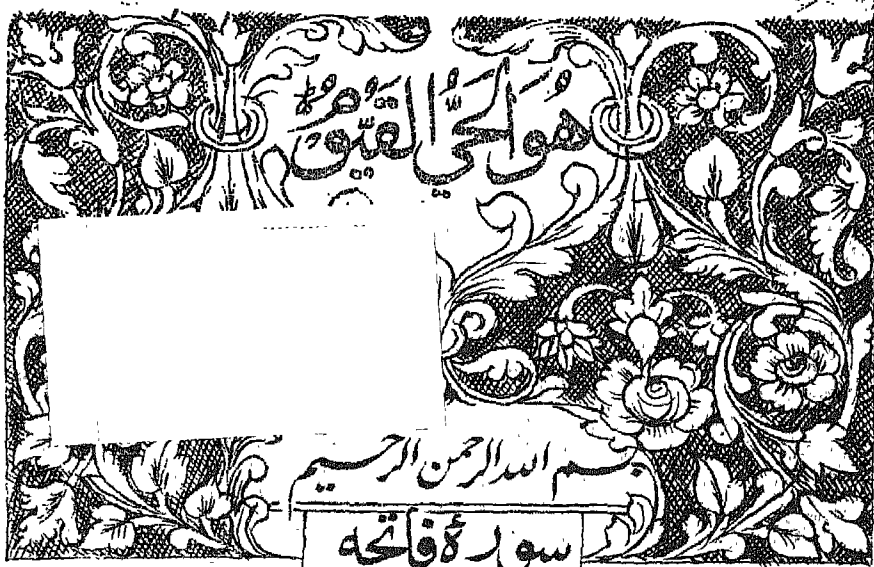 هُوَالحَيُّ القَيُّوْمُ
بسم الله الرحمن الرحیم
سورۂ فاتحه